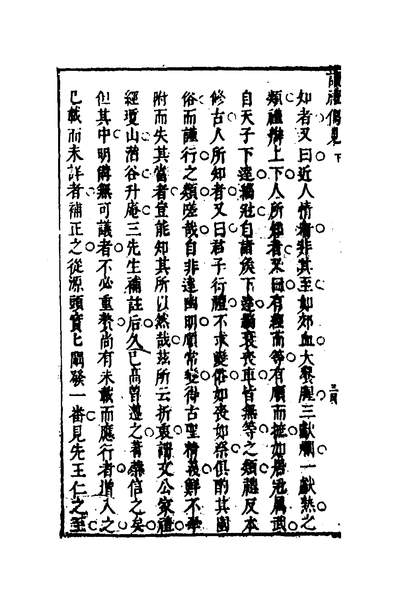 讀禮偶見 下
如者又曰近人情者非其至如郊血大饗腥三獻爓一獻熟之
類禮辯上下人所知者又曰有經而等有順而摭如君沐粱武
自天子下達攝冠自諸侯下達齊衰喪重皆無等之類禮反本
修古人所知者又曰君子行禮不求變俗如喪如祭俱酌其國
俗而謹行之類嗟哉自非達幽明順常變得古聖精義鮮不牽
附而失其當者豈能知其所以然哉茲所云折衷謂文公家禮
經瓊山潛谷升庵三先生補註后久已高曾遵之蓍蔡信之矣
但其中明備無可議者不必重贅尚有未載而應行者增入之
已載而未詳者補正之從源頭實七闡發一番見先王仁之至